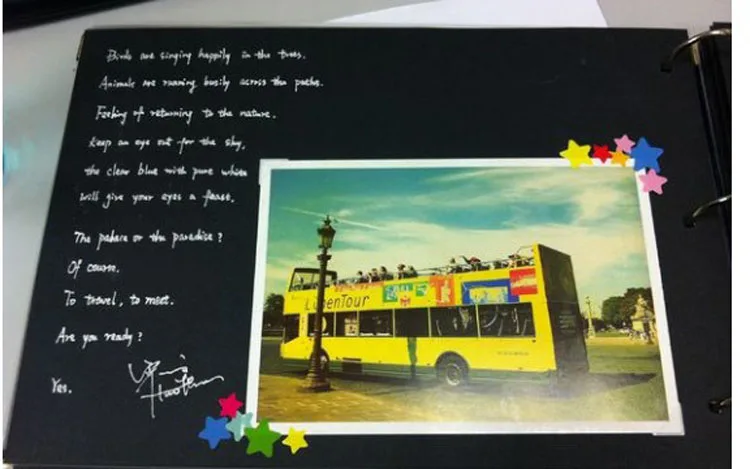 Birds are singing happily in the trees.
Animals are running busily across the paths.
Feeling of returning to the nature.
Keep an eye out for the sky,
the clear blue with pure white
will give your eyes a feast.
The palace or the paradise?
Of course.
To travel, to meet.
Are you ready?
Yes.
OpenTour